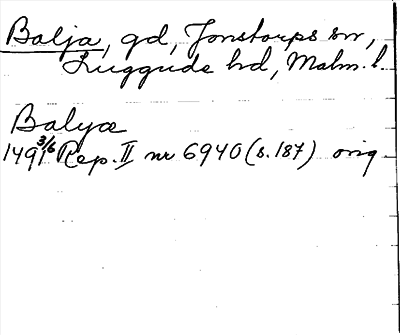 Balja, gd, Jonstorps sn,
Luggude hd, Malm. l.
Balyæ
1491 3/6 Rep. II nr 6940 (s. 187) orig